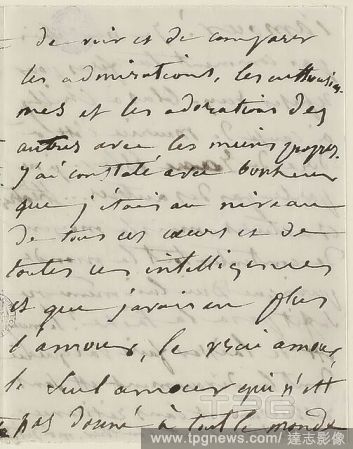 de voir et de comparer
les admirations, les enthousias-
mes et les adorations des
autres avec les miens propres.
J'ai constaté avec bonheur
que j'étais au niveau
de tous ces cœurs et de
toutes ces intelligences
et que j'avais en plus
l'amour, le vrai amour,
le seul amour qui n'est
pas donné à tout le monde
TPG
www.tpgnews.com/達志影像